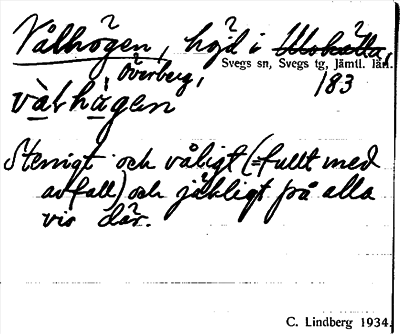 Vålhögen, höjd i Ulvkälla,
Överberg, Svegs sn, Svegs tg, Jämtl. län.
183
vàlhä̀gen
Stenigt och våligt (=fullt med
avfall) och jäkligt på alla
vis där.
C. Lindberg 1934.